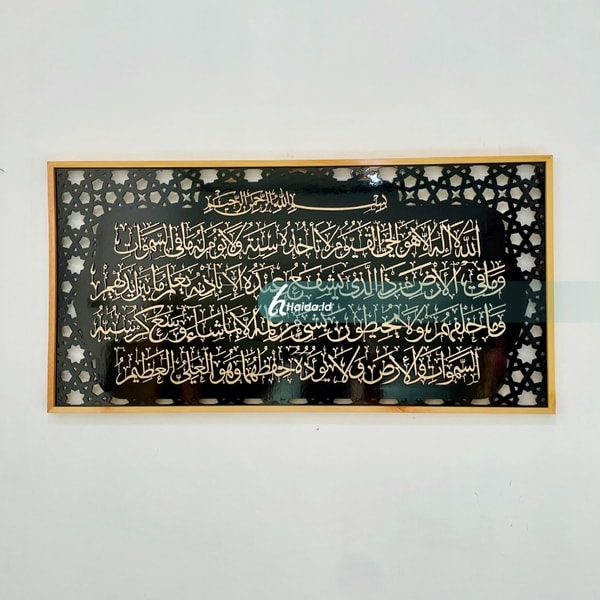 بسم الله الرحمن الرحيم
الله لا إله إلا هو الحي القيوم لا تأخذه سنة ولا نوم له ما في السموات
وما في الأرض من ذا الذي يشفع عنده إلا بإذنه يعلم ما بين أيديهم
Haida.id
وما خلفهم ولا يحيطون بشيء من علمه إلا بما شاء وسع كرسيه
السموات والأرض ولا يئوده حفظهما وهو العلي العظيم